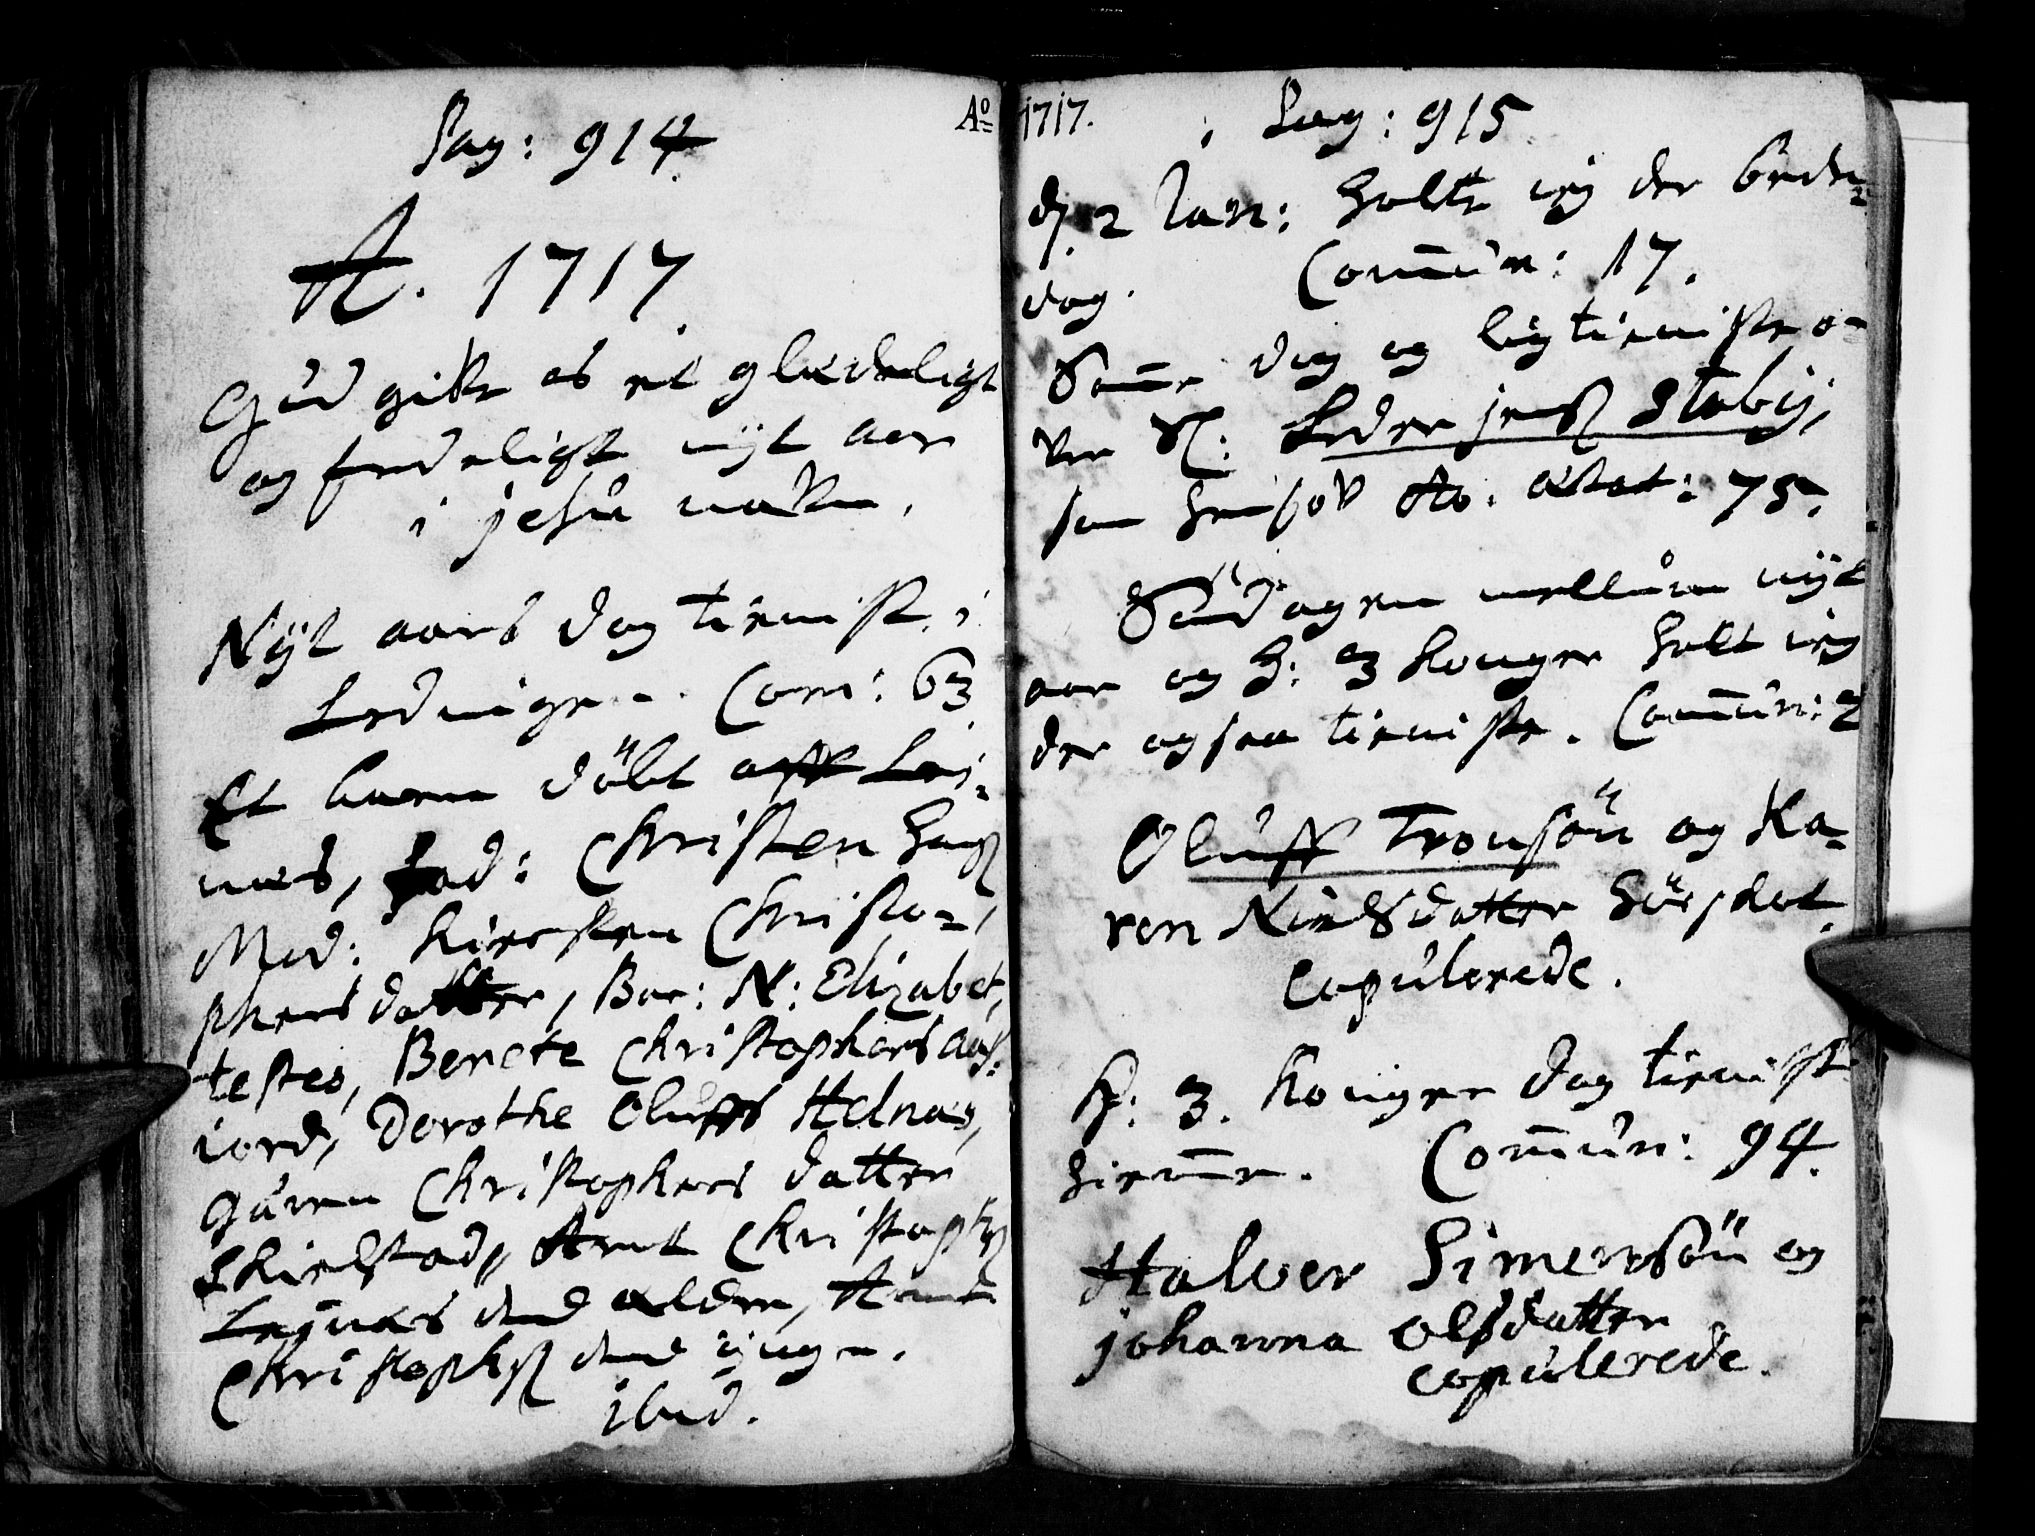 Pag: 914.
A. 1717
Gud gifve os et glædeligt
og fredeligt nyt aar
i jesu nafn.
Nyt aars dag tieniste i
Ledingen. Com: 63
Et barn döbt aff Lej=
næs, Fad: Christen
Mod: Kiersten Christo=
phersdatter, Bar: N: Elizabet,
testes, Berete Christophers
iord, Dorothe Oluffs Helnæs,
Guren Christophers datter
Skielstad, Arnt Christoph
Lejnæs dend ældre,
Christoph dend yngre.
ibid.
Ao 1717.
Pag: 915
d. 2 Jan: holte ieg der bede=
dag. Commun: 17.
Samme dag og ligtieniste o=
ver Sl: Peder jenß Staby,
som hensov Ao. ætat: 75.
Söndagen mellum nyt
aar og H: 3 Konger holt ieg
der ogsaa tieniste. Commun: 2
Oluff Tronsön og Ka=
ren Nielsdatter
copulerede.
H: 3. Konger dag tienist
hiemme. Commun: 94.
Halver Simensön og
johanna Olsdatter
copulerede.